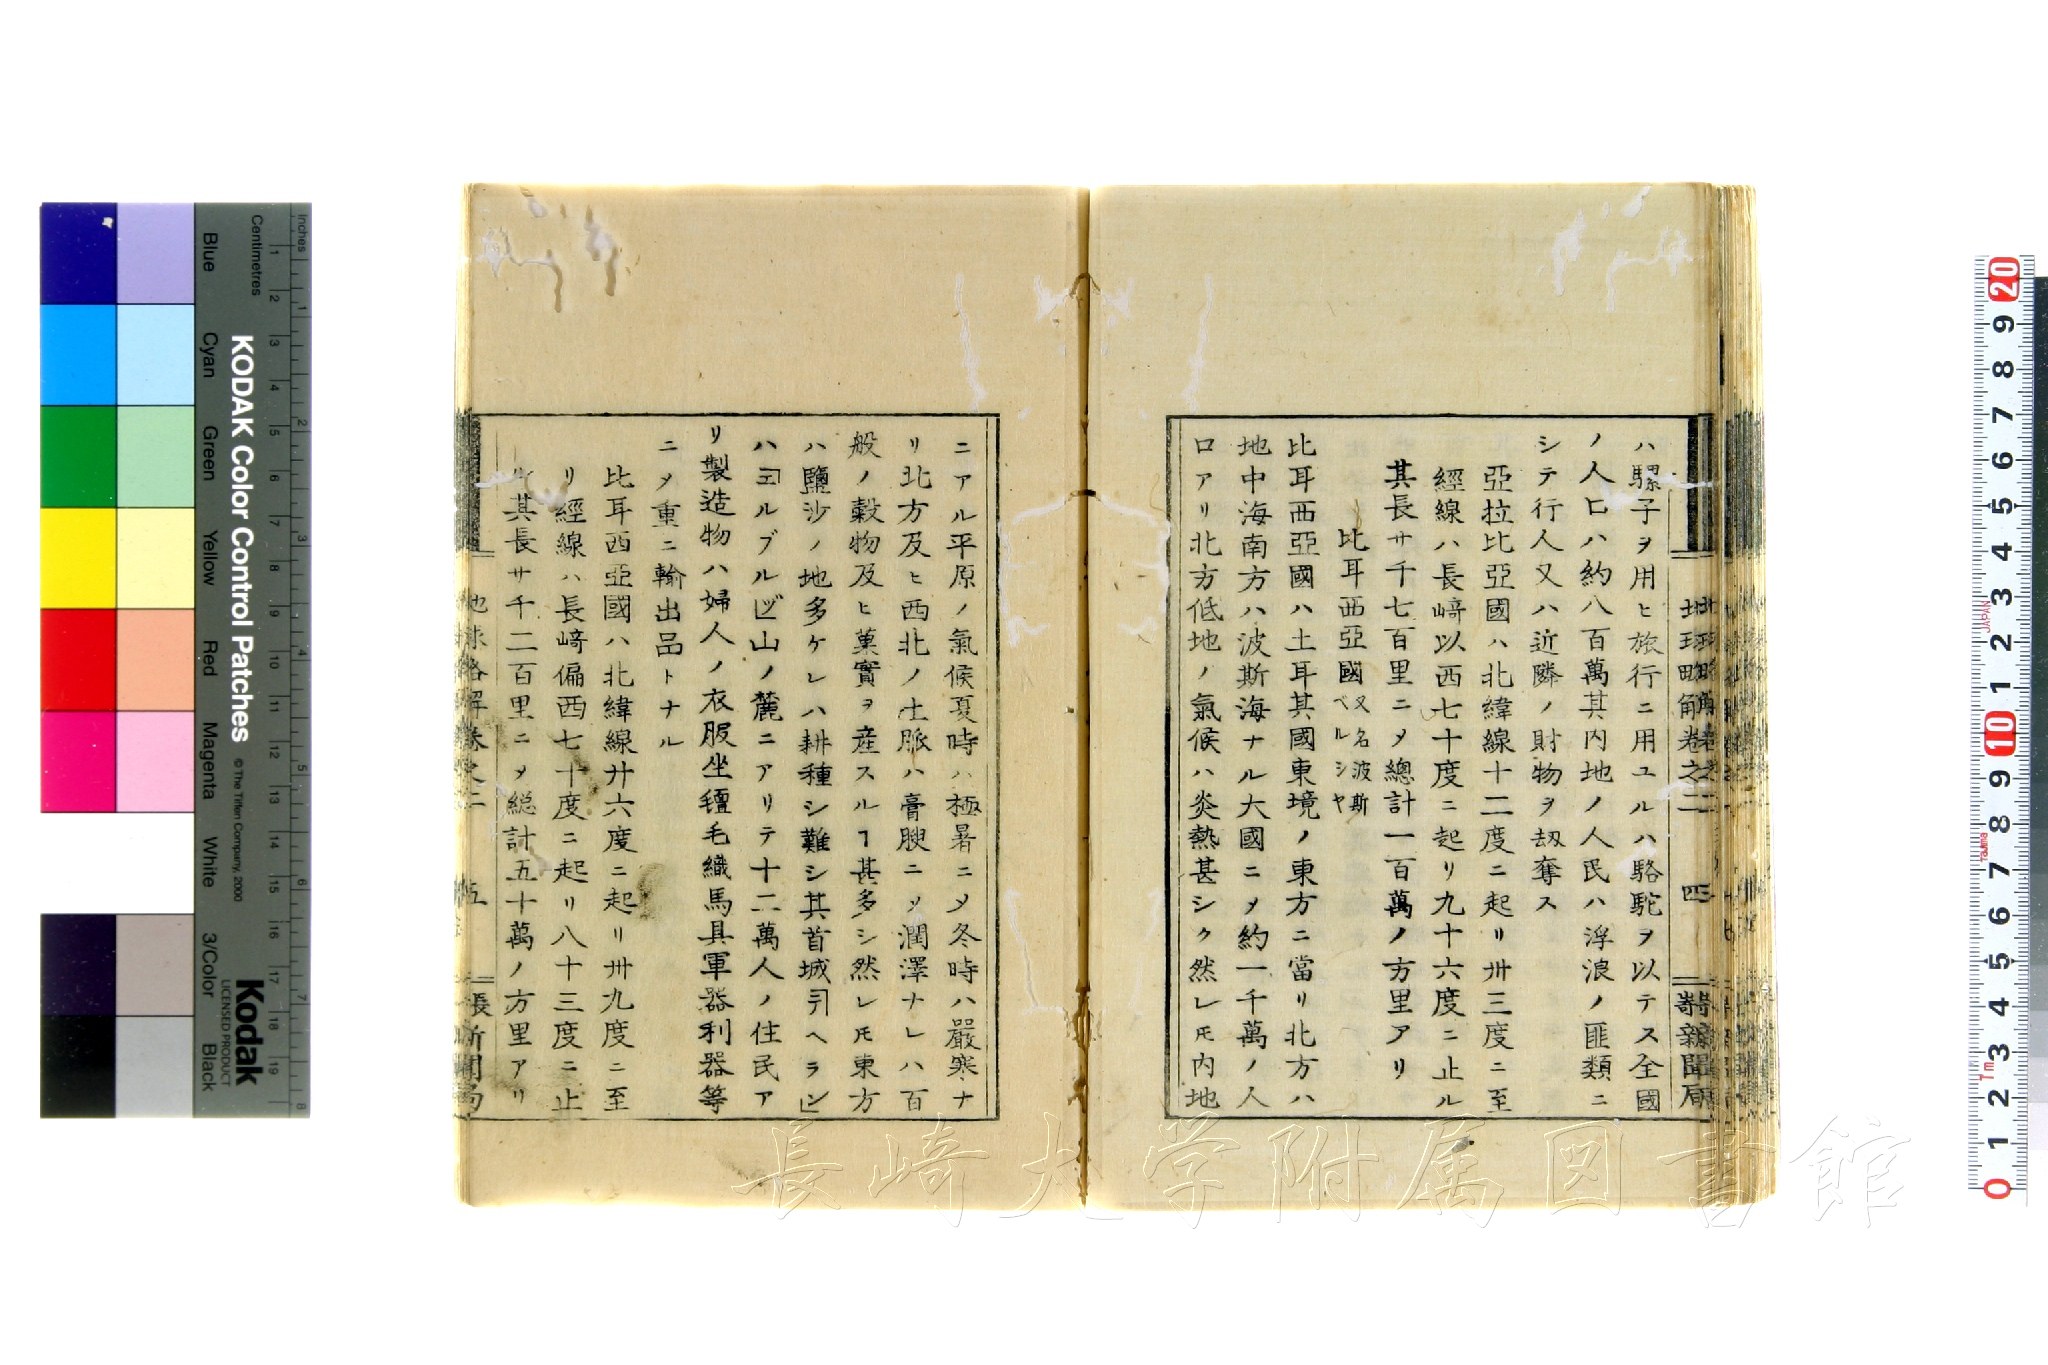 ハ騾子ヲ用ヒ旅行ニ用ユルハ駱駝ヲ以テス全國
ノ人口ハ約八百萬其内地ノ人民ハ浮浪ノ匪類ニ
シテ行人又ハ近隣ノ財物ヲ刼奪ス
亞拉比亞國ハ北緯線十二度ニ起リ卅三度ニ至
經線ハ長﨑以西七十度ニ起リ九十六度ニ止ル
其長サ千七百里ニメ總計一百萬ノ方里アリ
比耳西亞國又名波斯ベルシヤ
比耳西亞國ハ土耳其國東境ノ東方ニ當リ北方ハ
地中海南方ハ波斯海ナル大國ニメ約一千萬ノ人
口アリ北方低地ノ氣候ハ炎熱甚シク然レ𪜈内地
地球畧解卷之二
四
新聞局
ニアル平原ノ氣候夏時ハ極暑ニメ冬時ハ嚴寒ナ
リ北方及ヒ西北ノ土脈ハ膏腴ニメ潤澤ナレハ百
般ノ穀物及ヒ菓實ヲ産スルヿ甚多シ然レ𪜈東方
ハ鹽沙ノ地多ケレハ耕種シ難シ其首城「テヘラン」
ハ「エルブルヅ」山ノ麓ニアリテ十二萬人ノ住民ア
リ製造物ハ婦人ノ衣服坐氊毛織馬具軍器利器等
ニメ重ニ輸出品トナル
比耳西亞國ハ北緯線廿六度ニ起リ卅九度ニ至
リ經線ハ長﨑偏西七十度ニ起リ八十三度ニ止
ル其長サ千二百里ニメ総計五十萬ノ方里アリ
地球畧解卷之二
五
長 新聞局
長崎大学附属図書館
KODAK Color Control Patches
© The Tiffen Company, 2000
Kodak
LICENSED PRODUCT
Inches
Centimetres
Blue
Cyan
Green
Yellow
Red
Magenta
White
3/Color
Black
1 2 3 4 5 6 7 8 9 10 11 12 13 14 15 16 17 18 19
1 2 3 4 5 6 7 8
20 9 8 7 6 5 4 3 2 1 10 9 8 7 6 5 4 3 2 1 0
JAPAN
TAJIMA
7m